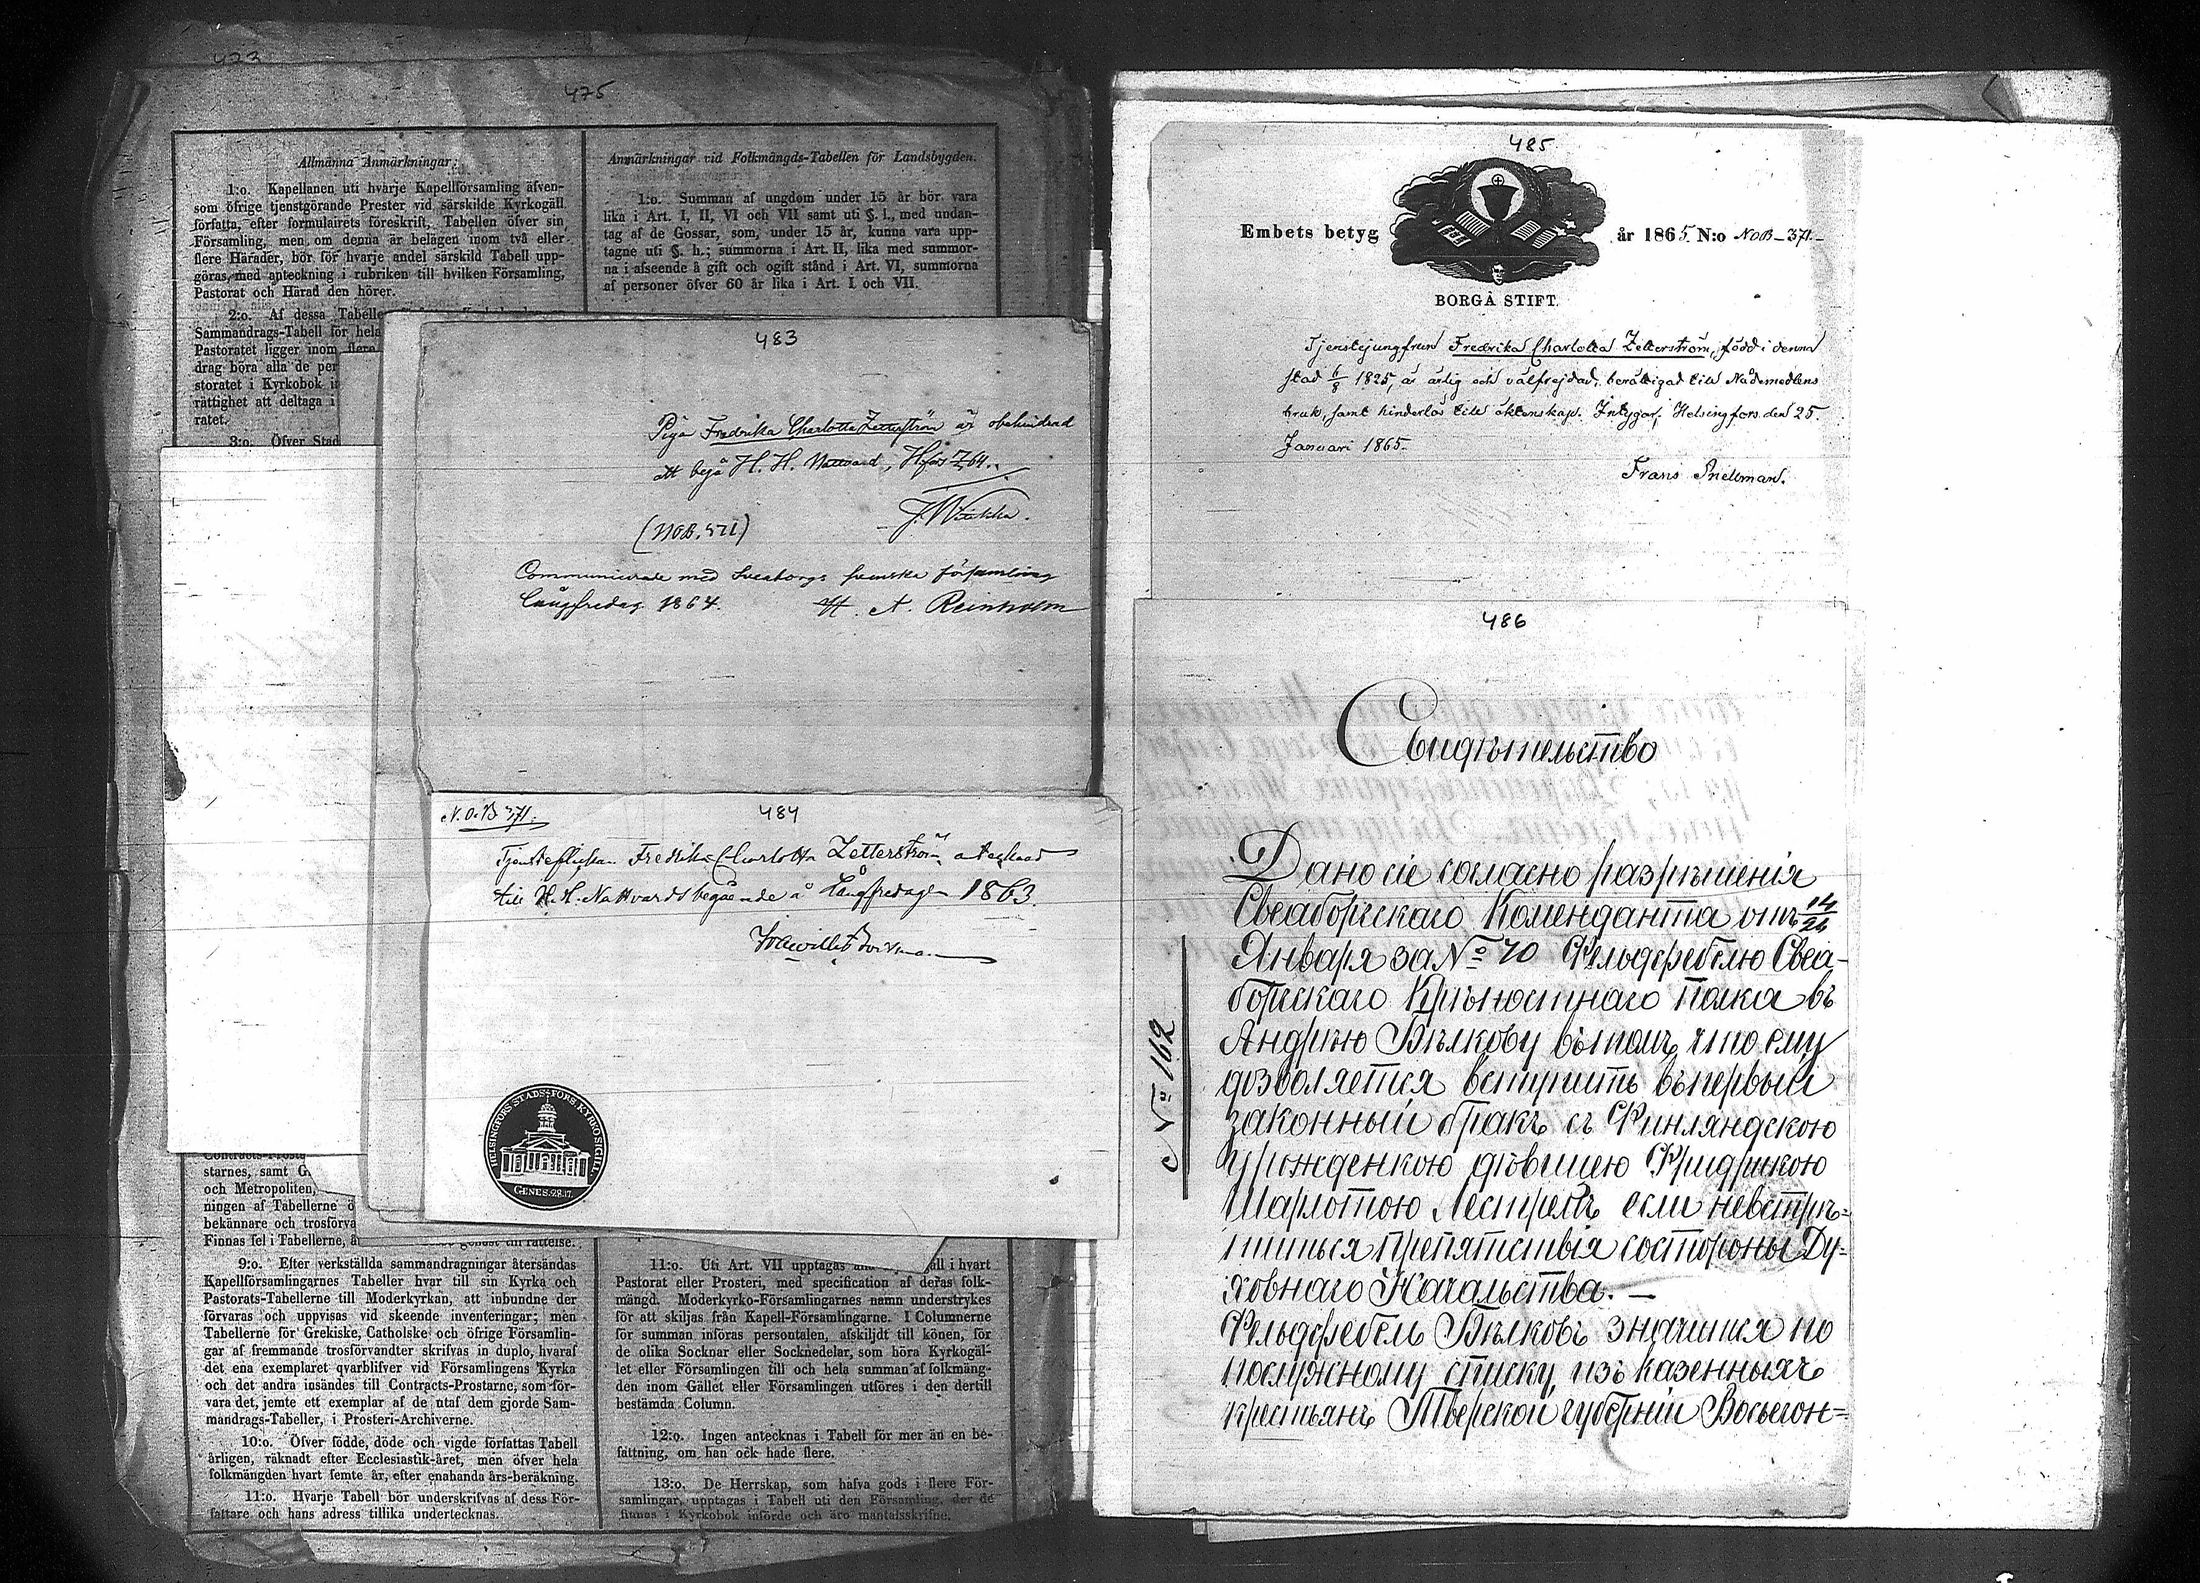 423
475
Allmänna Anmärkningar:
1:o. Kapellanen uti hvarje Kapellförsamling äfven-
som öfrige tjenstgörande Prester vid särskilde Kyrkogäll
författa, efter formulairets föreskrift, Tabellen öfver sin
Församling, men om denna är belägen inom två eller
flere Härader, bör för hvarje andel särskild Tabell upp-
göras, med apteckning i rubriken till hvilken Församling,
Pastorat och Härad den hörer.
2:o. Af dessa Tabelle
Sammandrags-Tabell för hela
Pastoratet ligger inom flere
drag böra alla de per
storatet i Kyrkobok i
rättighet att deltaga i
ratet.
3:o. Öfver Stad
Contracts-Prosta
starnes, samt G
och Metropoliten,
ningen af Tabellerne ö
bekännare och trosförva
Finnas fel i Tabellerne, ä genast till rättelse.
9:o. Efter verkställda sammandragningar återsändas
Kapellförsamlingarnes Tabeller hvar till sin Kyrka och
Pastorats-Tabellerne till Moderkyrkan, att inbundne der
förvaras och uppvisas vid skeende inventeringar; men
Tabellerne för Grekiske, Catholske och öfrige Församlin-
gar af fremmande trosförvandter skrifvas in duplo, hvaraf
det ena exemplaret qvarblifver vid Församlingens Kyrka
och det andra insändes till Contracts-Prostarne, som för-
vara det, jemte ett exemplar af de utaf dem gjorde Sam-
mandrags-Tabeller, i Prosteri-Archiverne.
10:o. Öfver födde, döde och vigde författas Tabell
årligen, räknadt efter Ecclesiastik-året, men öfver hela
folkmängden hvart femte år, efter enahanda års-beräkning.
11:o. Hvarje Tabell bör underskrifvas af dess För-
fattare och hans adress tillika undertecknas.
Anmärkningar vid Folkmängds-Tabellen för Landsbygden.
1:o. Summan af ungdom under 15 år bör vara
lika i Art. I, II, VI och VII samt uti §. l., med undan-
tag af de Gossar, som, under 15 år, kunna vara upp-
tagne uti §. h.; summorna i Art. II, lika med summor-
na i afseende å gift och ogift stånd i Art. VI, summorna
af personer öfver 60 år lika i Art. I och VII.
11:o. Uti Art. VII upptagas äll i hvart
Pastorat eller Prosteri, med specification af deras folk-
mängd. Moderkyrko-Församlingarnes namn understrykes
för att skiljas från Kapell-Församlingarne. I Columnerne
för summan införas persontalen, afskiljdt till könen, för
de olika Socknar eller Socknedelar, som höra Kyrkogäl-
let eller Församlingen till och hela summan af folkmäng-
den inom Gället eller Församlingen utföres i den dertill
bestämda Column.
12:o. Ingen antecknas i Tabell för mer än en be-
fattning, om han ock hade flere.
13:o. De Herrskap, som hafva gods i flere För-
samlingar, upptagas i Tabell uti den Församling, der de
finnas i Kyrkobok införde och äro mantalsskrifne.
483
Piga Fredrika Charlotta Zetterström är obehindrad
att begå H. H. Nattvard, Hfors 17/3 64.
J. Wiikka.
(NOB. 371)
Communicerade med Sveaborgs svenska församling
Långfredag 1864. H. A. Reinholm
N.O.B 371.
484
Tjensteflickan Fredrika Charlotta Zetterström antecknad
till H. H. Nattvards begående å Långfredagen 1863.
HELSINGFORS STADS-FÖRS. KYRKO SIGILL.
GENES. 28.17.
485
Embets betyg år 1865. N:o NOB-371.
BORGÅ STIFT.
Tjenstejungfrun Fredrika Charlotta Zetterström, född i denna
stad 6/8 1825, är ärlig och välfrejdad, berättigad till Nådemedlens
bruk, samt hinderlös till äktenskap. Intygar, Helsingfors den 25
Januari 1865.
Frans Snellman.
486
Свидѣтельство
Дано сіе согласно разрѣшенія
Свеаборгскаго Коменданта отъ 14/26
Января за № 70 Фельдфебелю Свеа-
боргскаго Крѣпостнаго полка въ
Андрѣю Бѣлкову въ томъ, что ему
дозволяется вступить въ первый
законный бракъ съ Финляндскою
урожденкою дѣвицею Фридрикою
Шарлотою Лестремъ если невстрѣ=
тится препятствія состороны Ду=
ховнаго Начальства. —
Фельдфебель Бѣлковъ значится по
послужному списку изъ казенныхъ
крестьянъ Тверской губерніи Весьегон=
№ 162